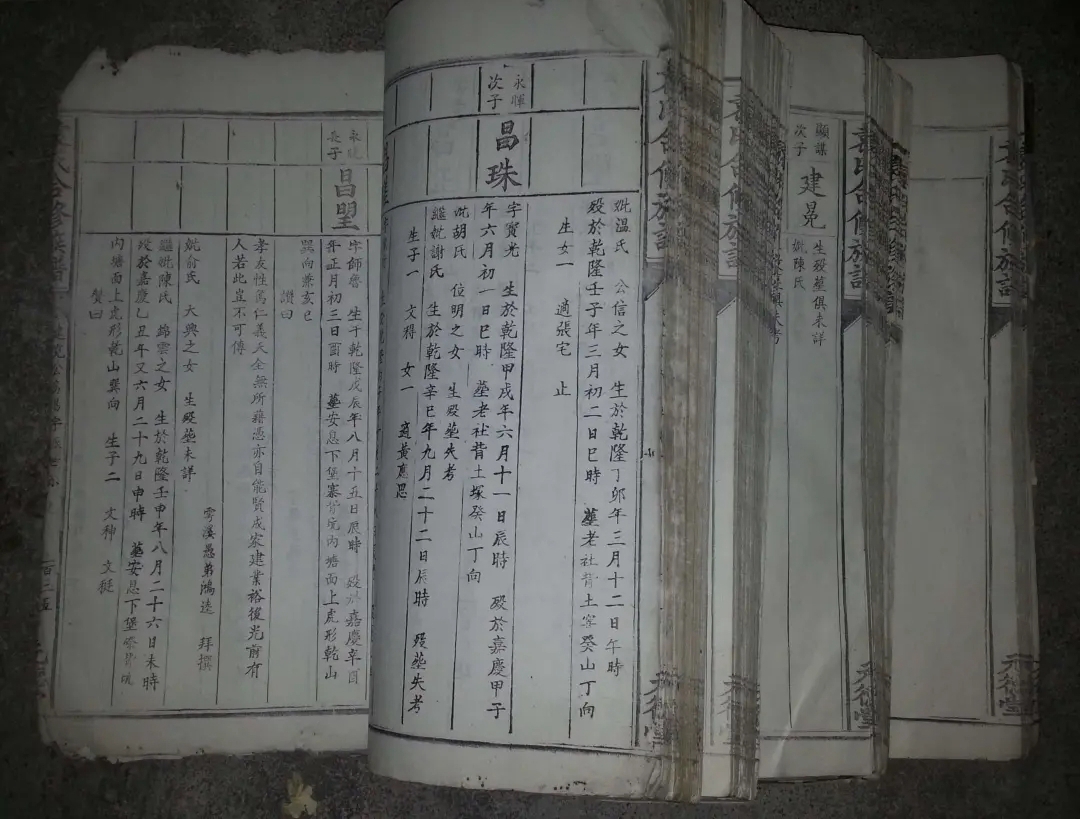 妣温氏 公信之女 生於乾隆丁卯年三月十二日午時
殁於乾隆壬子年三月初二日巳時 墓老社背土窖癸山丁向
生女一 適張宅 止
永暉
次子
昌珠
字寳光 生於乾隆甲戌年六月十一日辰時 殁於嘉慶甲子
年六月初一日巳時 墓老社背土塚癸山丁向
妣胡氏 位明之女 生殁墓失考
繼妣謝氏 生於乾隆辛巳年九月二十二日辰時 殁墓失考
生子一 文 女一 適黄應思
長子
昌朢
字師魯 生于乾隆戊辰年八月十五日辰時 殁於嘉慶辛酉
年正月初三日酉時 墓安息下堡寨背坑内塘面上虎形乾山
巽向兼亥巳
讚曰
孝友性篤仁義天全無所藉憑亦自能賢成家建業裕後光前有
人若此豈不可傳
雩溪愚弟鴻逵 拜撰
妣俞氏 大興之女 生殁墓未詳
繼妣陳氏 錦雲之女 生於乾隆壬申年八月二十六日未時
殁於嘉慶乙丑年又六月二十九日申時 墓安息下堡寨背坑
内塘面上虎形乾山巽向 生子二 文种 文挺
贊曰
袁氏合修族譜
顯謀
次子
建晃
生殁墓俱未詳
妣陳氏
袁氏合修族譜